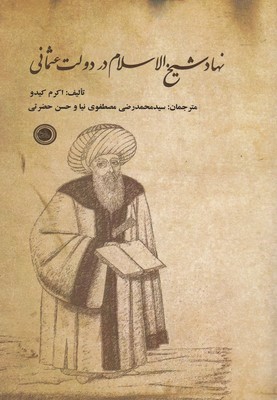 نهاد شیخ الاسلام در دولت عثمانی
تألیف: اکرم کیدو
مترجمان: سیدمحمدرضی مصطفوی نیا و حسن حضرتی